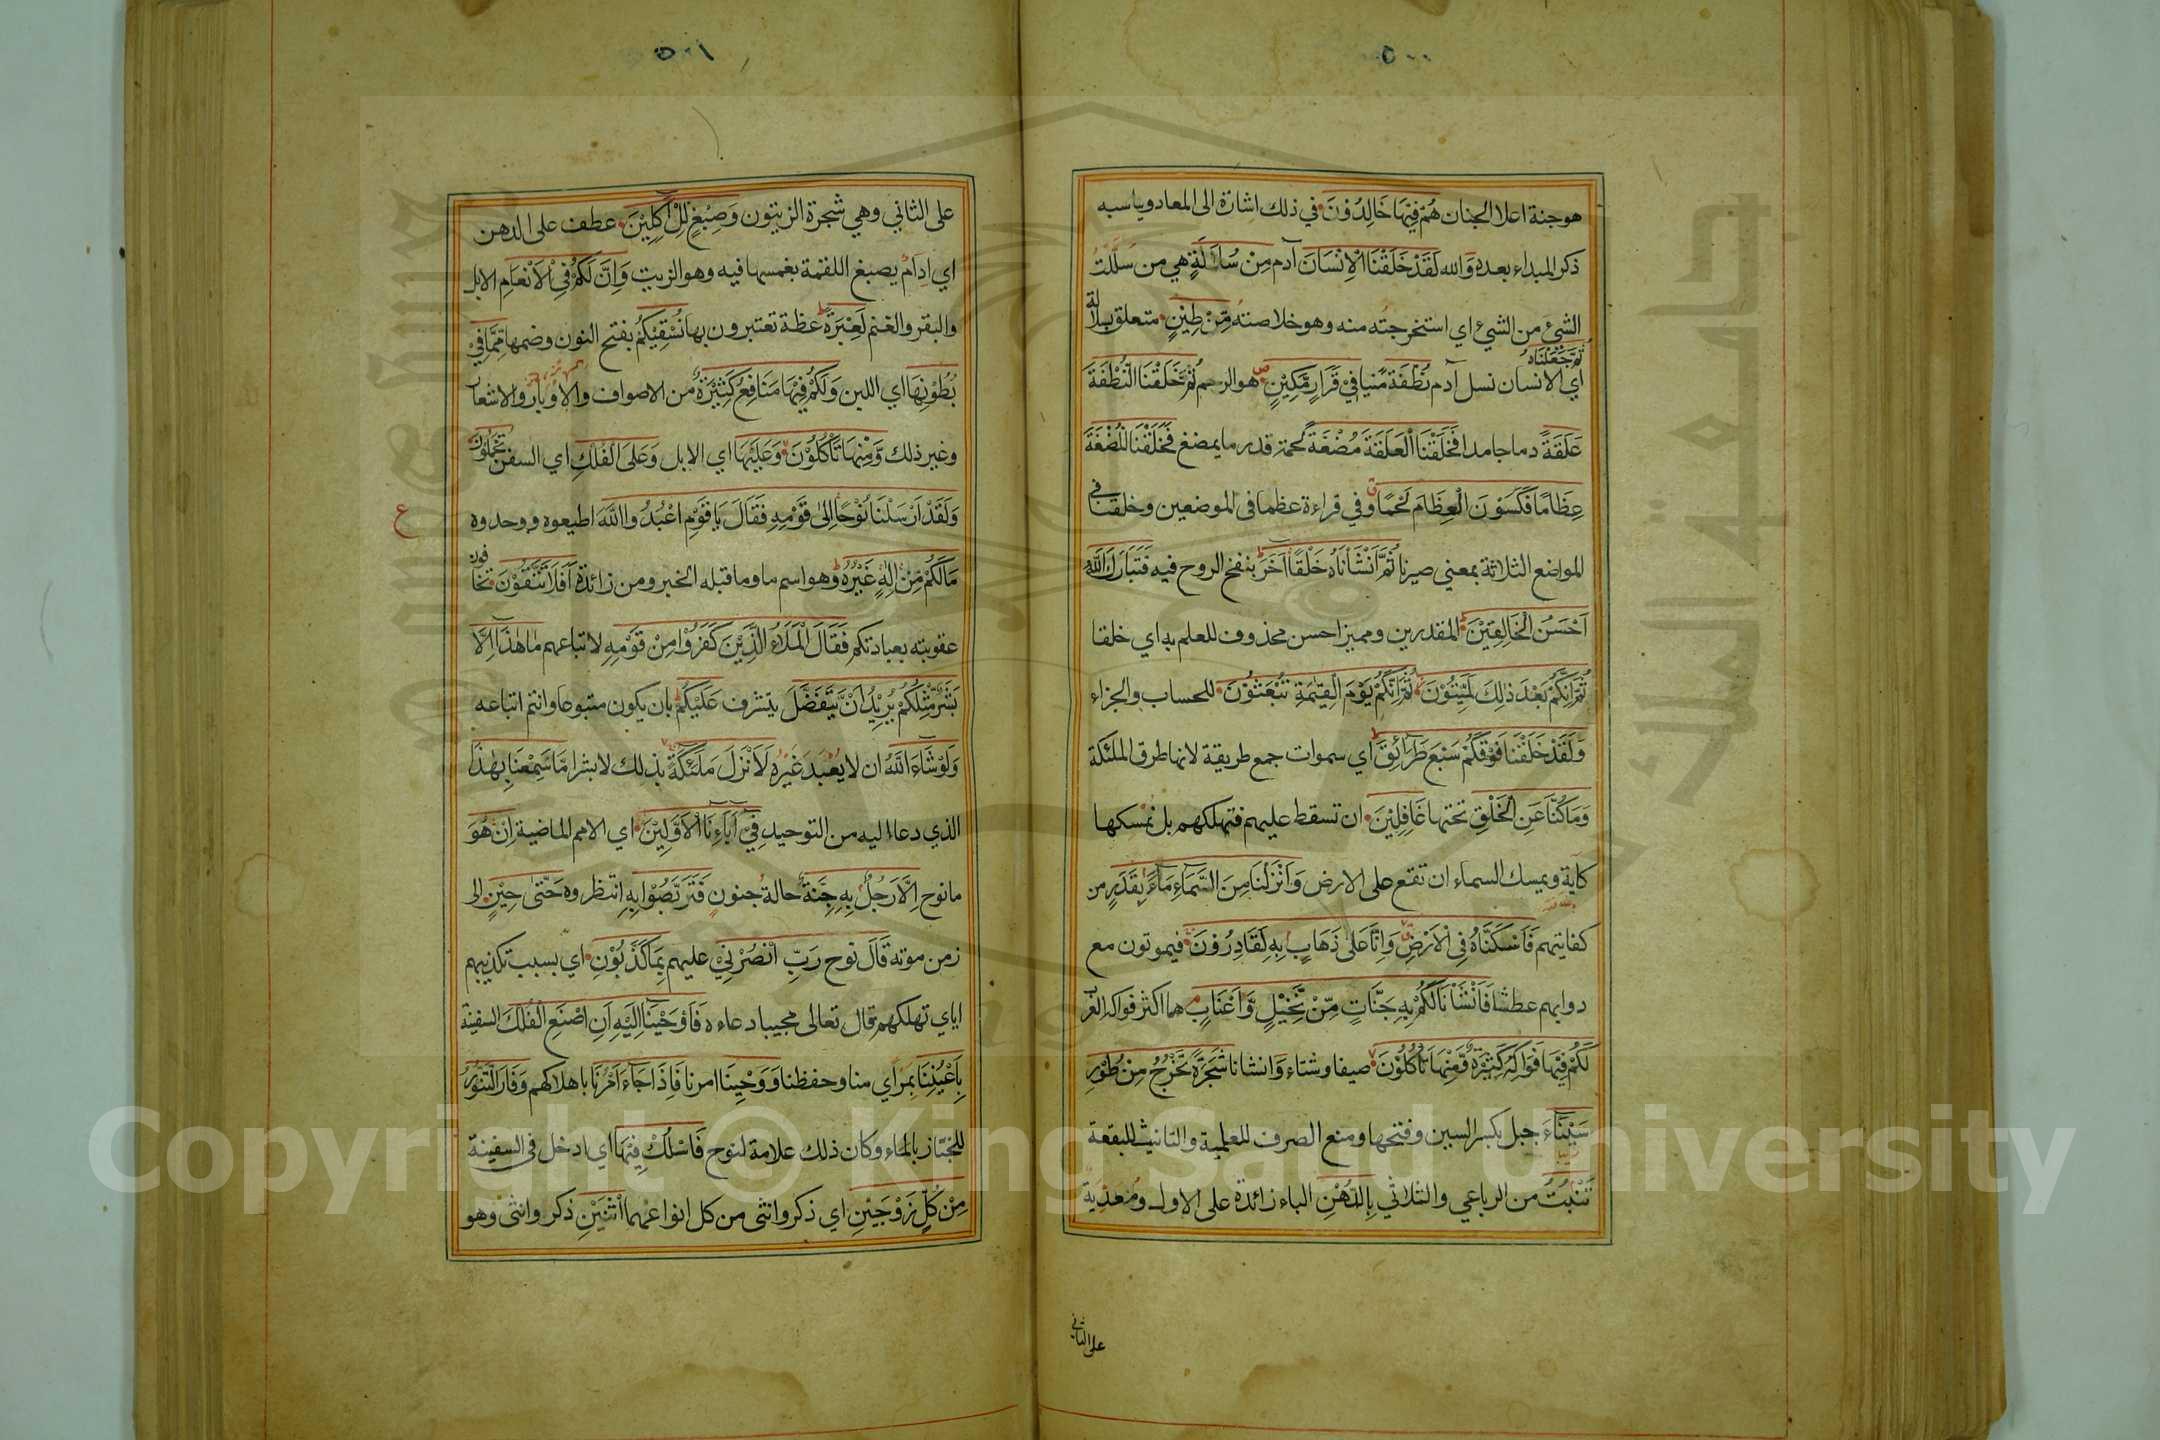 ٥٠٠
هو جنة اعلا الجنان هُمْ فِيْهَا خَالِدُوْنَ في ذلك اشارة الى المعاد ويناسبه
ذكر المبداء بعده وَالله لَقَدْ خَلَقْنَا الْاِنْسَانَ آدم مِنْ سُلَالَةٍ هي من سللت
الشيئ من الشيئ اي استخرجته منه وهو خلاصته مِّنْ طِيْنٍ متعلق بسلالة
ثُمَّ جَعَلْنَاهُ
اي الانسان نسل آدم نُطْفَةً منيا فِيْ قَرَارٍ مَّكِيْنٍ هو الرحم ثُمَّ خَلَقْنَا النُّطْفَةَ
عَلَقَةً دما جامدا فَخَلَقْنَا الْعَلَقَةَ مُضْغَةً لحمة قدر ما يمضغ فَخَلَقْنَا الْمُضْغَةَ
عِظَامًا فَكَسَوْنَ الْعِظَامَ لَحْمًا وفي قراءة عظما في الموضعين وخلقنا في
المواضع الثلاثة بمعنى صيرنا ثُمَّ اَنْشَاْنَاهُ خَلْقًا اٰخَرَ بنفخ الروح فيه فَتَبَارَكَ اللّٰهُ
اَحْسَنُ الْخَالِقِيْنَ المقدرين ومميز احسن محذوف للعلم به اي خلقا
ثُمَّ اِنَّكُمْ بَعْدَ ذٰلِكَ لَمَيِّتُوْنَ ثُمَّ اِنَّكُمْ يَوْمَ الْقِيٰمَةِ تُبْعَثُوْنَ للحساب والجزاء
وَلَقَدْ خَلَقْنَا فَوْقَكُمْ سَبْعَ طَرَآئِقَ اي سموات جمع طريقة لانها طرق الملئكة
وَمَا كُنَّا عَنِ الْخَلْقِ تحتها غَافِلِيْنَ ان تسقط عليهم فتهلكهم بل نمسكها
كآية ويمسك السماء ان تقع على الارض وَاَنْزَلْنَا مِنَ السَّمَآءِ مَآءً بِقَدَرٍ من
كفايتهم فَاَسْكَنَّاهُ فِى الْاَرْضِ وَاِنَّا عَلٰى ذَهَابٍ بِهِ لَقَادِرُوْنَ فيموتون مع
دوابهم عطشا فَاَنْشَاْنَا لَكُمْ بِهِ جَنَّاتٍ مِّنْ نَّخِيْلٍ وَّاَعْنَابٍ هما اكثر فواكه العرب
لَكُمْ فِيْهَا فَوَاكِهُ كَثِيْرَةٌ وَّمِنْهَا تَاْكُلُوْنَ صيفا وشتاء وَانشانا شَجَرَةً تَخْرُجُ مِنْ طُوْرِ
سَيْنَآءَ جبل بكسر السين وفتحها ومنع الصرف للعلمية والتانيث للبقعة
تَنْبُتُ من الرباعي والثلاثي بِالدُّهْنِ الباء زائدة على الاول ومعدية
على الثاني
٥٠١
على الثاني وهي شجرة الزيتون وَصِبْغٍ لِلْاٰكِلِيْنَ عطف على الدهن
اي اِدام يصبغ اللقمة بغمسها فيه وهو الزيت وَاِنَّ لَكُمْ فِى الْاَنْعَامِ الابل
والبقر والغنم لَعِبْرَةً عظة تعتبرون بها نُسْقِيْكُمْ بفتح النون وضمها مِمَّا فِيْ
بُطُوْنِهَا اي اللبن وَلَكُمْ فِيْهَا مَنَافِعُ كَثِيْرَةٌ من الاصواف والاوبار والاشعار
وغير ذلك وَّمِنْهَا تَاْكُلُوْنَ وَعَلَيْهَا اي الابل وَعَلَى الْفُلْكِ اي السفن تُحْمَلُوْنَ
ع
وَلَقَدْ اَرْسَلْنَا نُوْحًا اِلٰى قَوْمِهِ فَقَالَ يَاقَوْمِ اعْبُدُوا اللّٰهَ اطيعوه ووحدوه
مَالَكُمْ مِّنْ اِلٰهٍ غَيْرُهُ وهو اسم ما وما قبله الخبر ومن زائدة اَفَلَا تَتَّقُوْنَ تخافون
عقوبته بعبادتكم فَقَالَ الْمَلَاُ الَّذِيْنَ كَفَرُوْا مِنْ قَوْمِهِ لاتباعهم مَا هٰذَا اِلَّا
بَشَرٌ مِّثْلُكُمْ يُرِيْدُ اَنْ يَّتَفَضَّلَ يتشرف عَلَيْكُمْ بان يكون متبوعا وانتم اتباعه
وَلَوْ شَآءَ اللّٰهُ ان لا يعبد غيره لَاَنْزَلَ مَلٰئِكَةً بذلك لا بشرا مَّا سَمِعْنَا بِهٰذَا
الذي دعا اليه من التوحيد فِيْٓ اٰبَآءِنَا الْاَوَّلِيْنَ اي الامم الماضية اِنْ هُوَ
ما نوح اِلَّا رَجُلٌ بِهِ جِنَّةٌ حالة جنون فَتَرَبَّصُوْا بِهِ انتظروه حَتّٰى حِيْنٍ الى
زمن موته قَالَ نوح رَبِّ انْصُرْنِيْ عليهم بِمَا كَذَّبُوْنِ اي بسبب تكذيبهم
اياي تهلكهم قال تعالى مجيبا دعاءه فَاَوْحَيْنَا اِلَيْهِ اَنِ اصْنَعِ الْفُلْكَ السفينة
بِاَعْيُنِنَا بمراي منا وحفظنا وَوَحْيِنَا امرنا فَاِذَا جَآءَ اَمْرُنَا باهلاكهم وَفَارَ التَّنُّوْرُ
للخباز بالماء وكان ذلك علامة لنوح فَاسْلُكْ فِيْهَا اي ادخل في السفينة
مِنْ كُلٍّ زَوْجَيْنِ اي ذكر وانثى من كل انواعهما اثْنَيْنِ ذكر وانثى وهو
Copyright © King Saud University